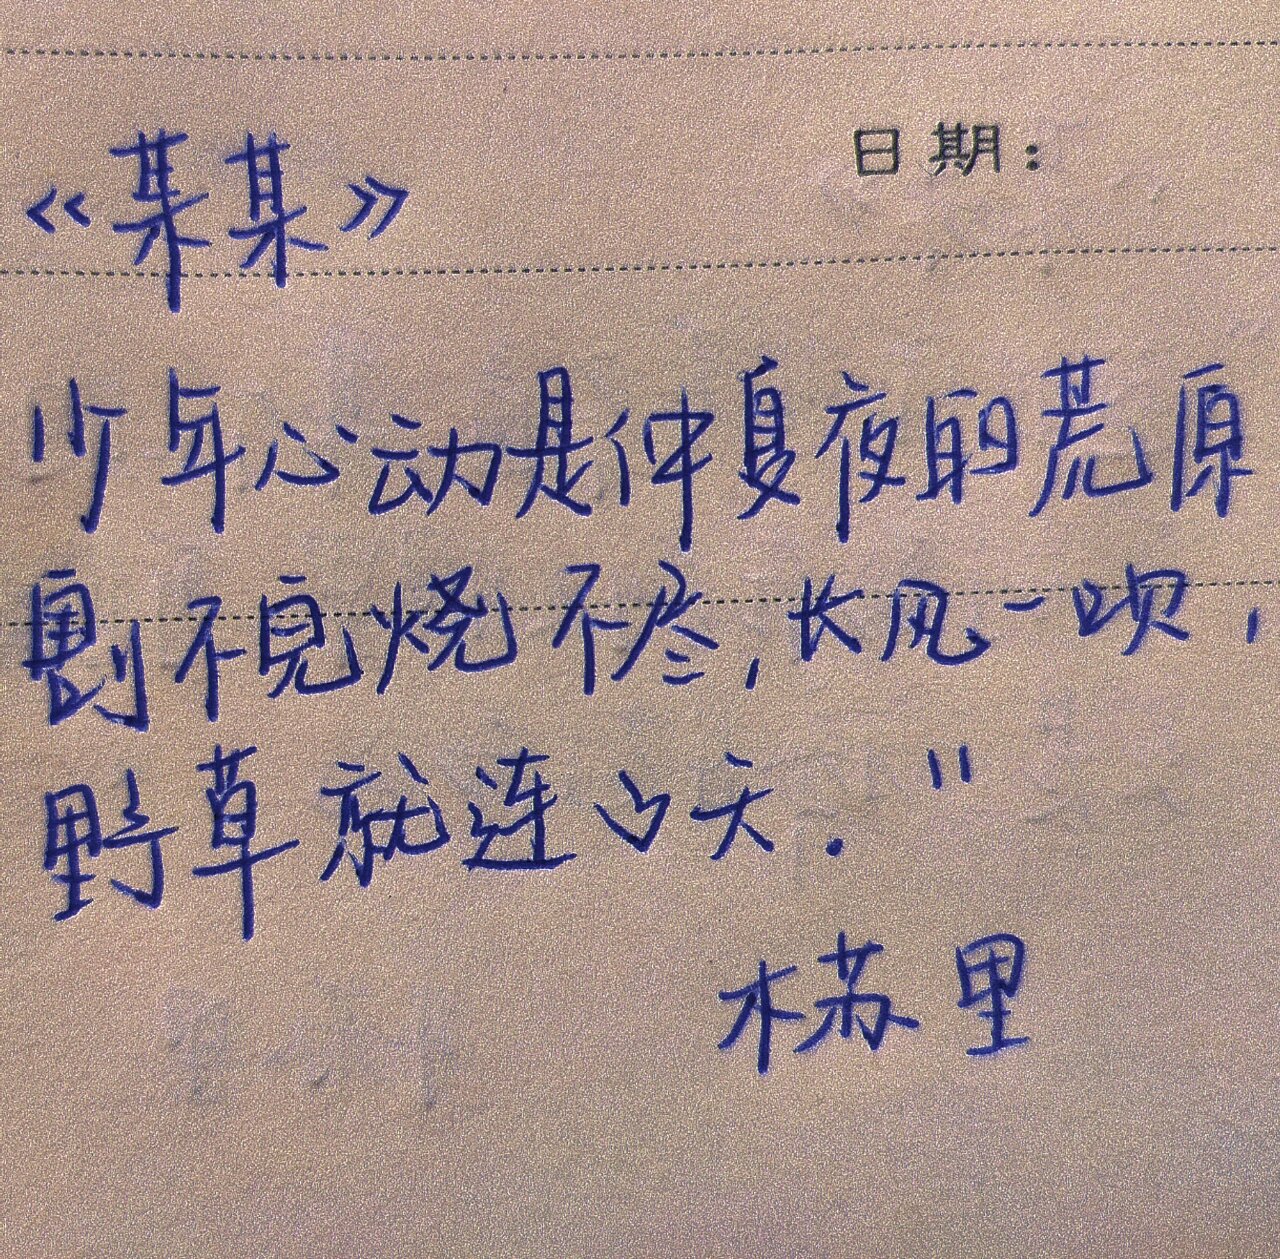 《某某》 日期：
少年心动是仲夏夜的荒原
割不完烧不尽，长风一吹，
野草就连了天．"
木苏里